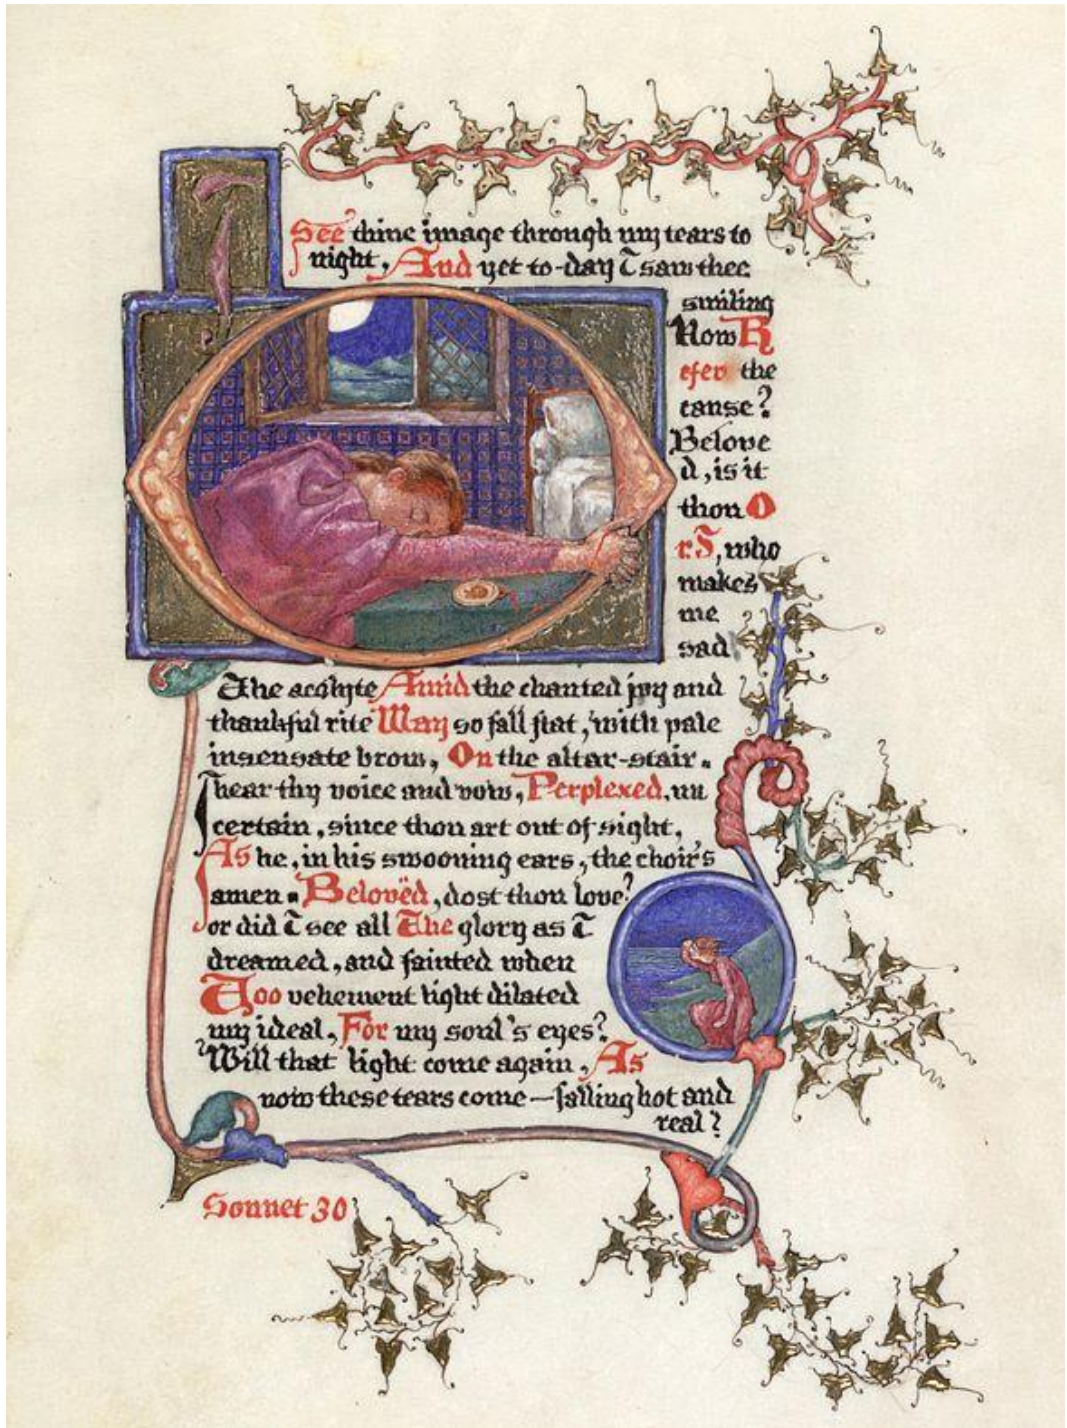 I
See thine image through my tears to
night, And yet to-day I saw thee
smiling
How R
efer the
cause?
Belove
d, is it
thou O
r I, who
makes
me
sad
The acolyte Amid the chanted joy and
thankful rite May so fall flat, with pale
insensate brow, On the altar-stair.
I hear thy voice and vow, Perplexed, un
certain, since thou art out of sight,
As he, in his swooning ears, the choir's
amen. Belovëd, dost thou love?
or did I see all The glory as I
dreamed, and fainted when
Too vehement light dilated
my ideal, For my soul's eyes?
Will that light come again, As
now these tears come—falling hot and
real?
Sonnet 30